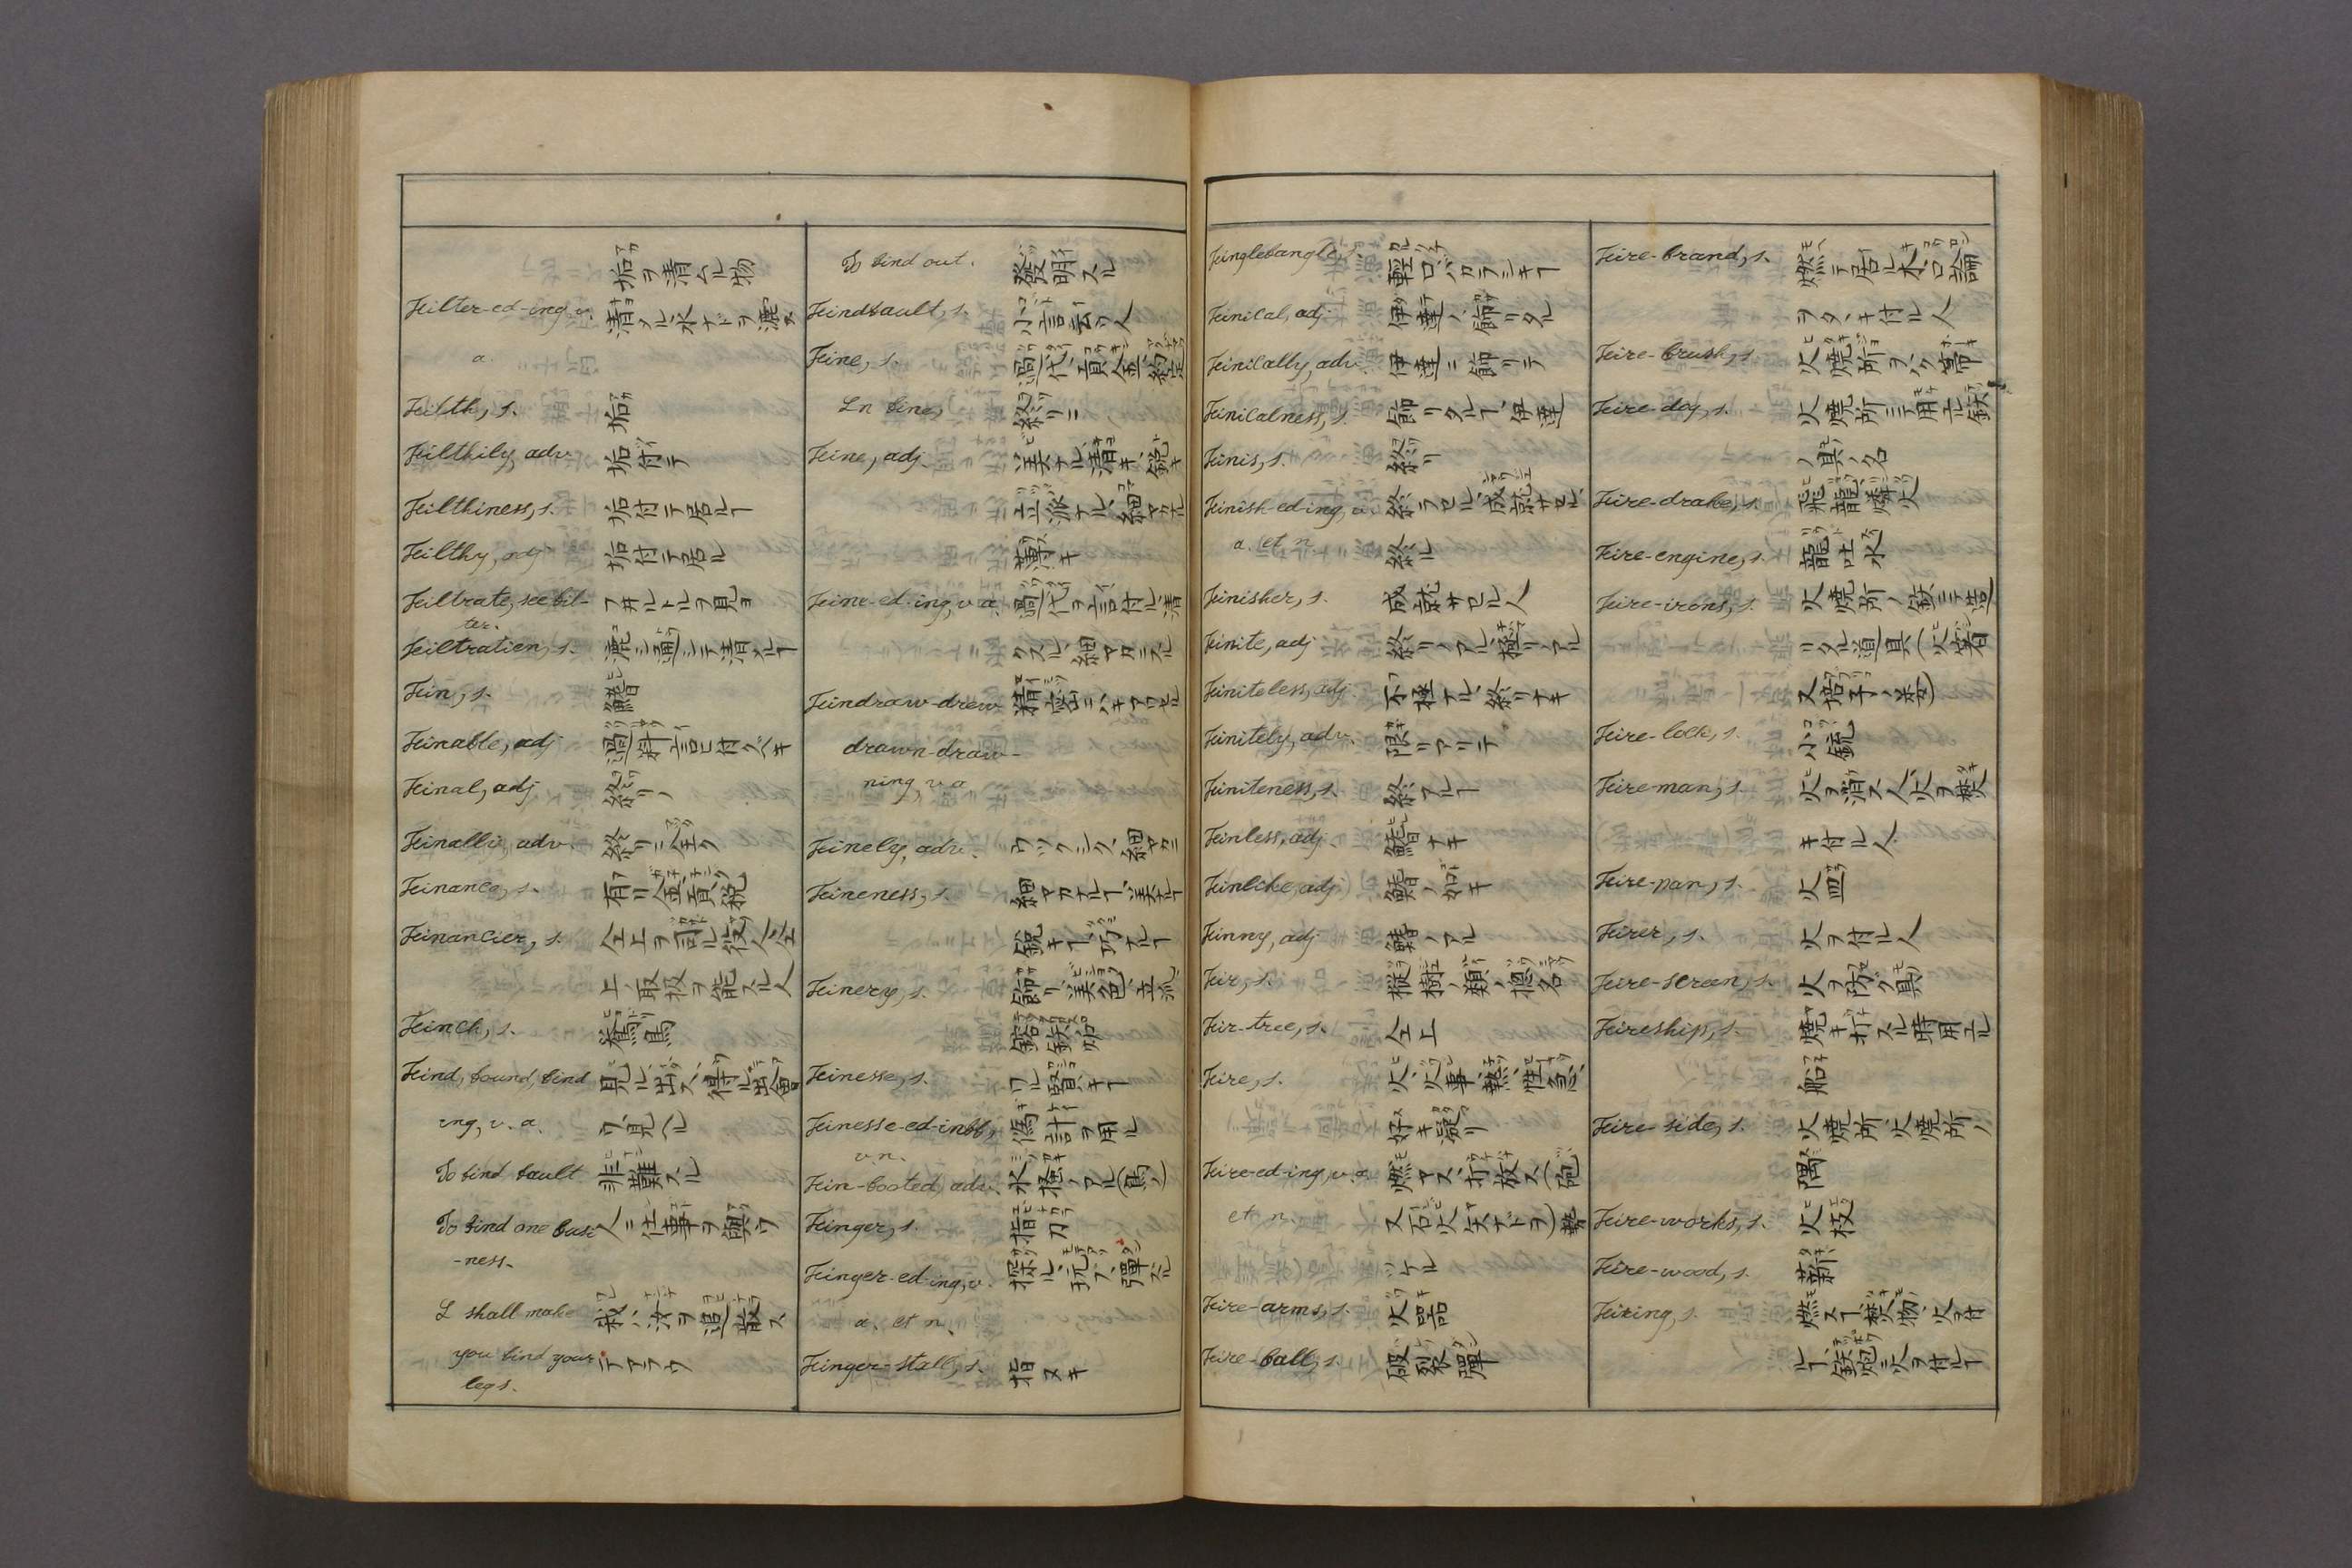 垢ヲ清ムル物
Filter-ed-ing, v. 清クル水ナドヲ漉ス
a.
Filth, s. 垢
Filthily, adv. 垢付テ
Filthiness, s. 垢付テ居ルヿ
Filthy, adj 垢付テ居ル
Filtrate, see fil- フ井ルトルヲ見ヨ
ter.
Filtration, s. 漉シ通シテ清メルヿ
Fin, s. 鰭
Finable, adj 過料言ヒ付クベキ
Final, adj 終リノ
Finally, adv 終リニ全ク
Finance, s. 有リ金貢税
Financier, s. 仝上ヲ司ル役人仝
上ノ取扱ヲ能スル人
Finch, s.
Find, found, find 見ル出ス得ル出會
ing, v. a. ウ見ヘル
To find fault 非難スル
To find one busi 人ニ仕事ヲ與ウ
-ness.
I shall make 我ハ汝ヲ追散ス
you find your デアラウ
legs.
To find out. 發明スル
Findfault, s. 小言云ウ人
Fine, s. 過代、貢金
In fine, 終リニ
Fine, adj. 美ナル清キ、鋭キ
立派ナル、細マカナル
薄キ
Fine-ed-ing, v a 過代ヲ言付ル、清
クスル、細マカニスル
Findraw-drew 精密ニ
drawn-draw-
ning, v a
Finely, adv. ウツクシク、細マカニ
Fineness, s. 細マカナルヿ、美ナルヿ
鋭キヿ、巧ナルヿ
Finery, s. 飾リ、美色、立派
Finesse, s. ワル賢キヿ
Finesse-ed-inbf, 偽計ヲ用ル
v. n.
Fin-footed, adv. 水掻ノアル(鳥ノ)
Finger, s. 指
Finger-ed-ing, v. 探ル、玩ブ、彈ズル
a. et n.
Finger-stall, s. 指ヌキ
Finglefangle, s. 輕口
Finical, adj 伊達ノ、飾リタル
Finically, adv. 伊達ニ飾リテ
Finicalness, s. 飾リタルヿ、伊達
Finis, s. 終リ
Finish-ed-ing, v. 終ラセル、成就サセル、
a. et n. 終ル
Finisher, s. 成就サセル人
Finite, adj 終リノアル、極リノアル
Finiteless, adj. 不極ナル、終リナキ
Finitely, adv. 限リアリテ
Finiteness, s. 終アルヿ
Finless, adj 鰭ナキ
Finlike, adj 鰭ノ如キ
Finny, adj 鰭ノアル
Fir, s. 樅樹ノ類ノ總名
Fir-tree, s. 仝上
Fire, s. 火、火事、熱、性急、
好キ凝リ
Fire-ed-ing, v. a. 燃ヤス、打放ス(砲
et n. 又石火矢ナドヲ)
ツケル
Fire-arms, s. 火器
Fire-ball, s. 破裂彈
Fire-brand, s. 燃テ居ル木口論
ヲタヽキ付ル人
Fire-brush, s. 火焼所ヲハク帚
Fire-dog, s. 火焼所ニテ用立ル鉄
ノ具ノ名
Fire-drake, s. 飛龍、燐火
Fire-engine, s. 龍吐水
Fire-irons, s. 火焼所ノ鉄ニテ造
リタル道具(火箸
Fire-lock, s. 小銃
Fire-man, s. 火ヲ消ス人、火ヲ焚
キ付ル人
Fire-pan, s. 火皿
Firer, s. 火ヲ付ル人
Fire-screen, s. 火ヲ防グ具
Fireship, s. 焼キ打スル時用立ル
船
Fire-side, s. 火焼所、火焼所ノ
隅
Fire-works, s. 火技
Fire-wood, s. 薪
Firing, s. 燃スヿ、焚物、火ヲ付
ルヿ、鉄炮ニ火ヲ付ルヿ